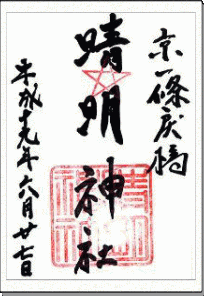 京一條戻橋
晴明神社
平成十九年六月廿七日